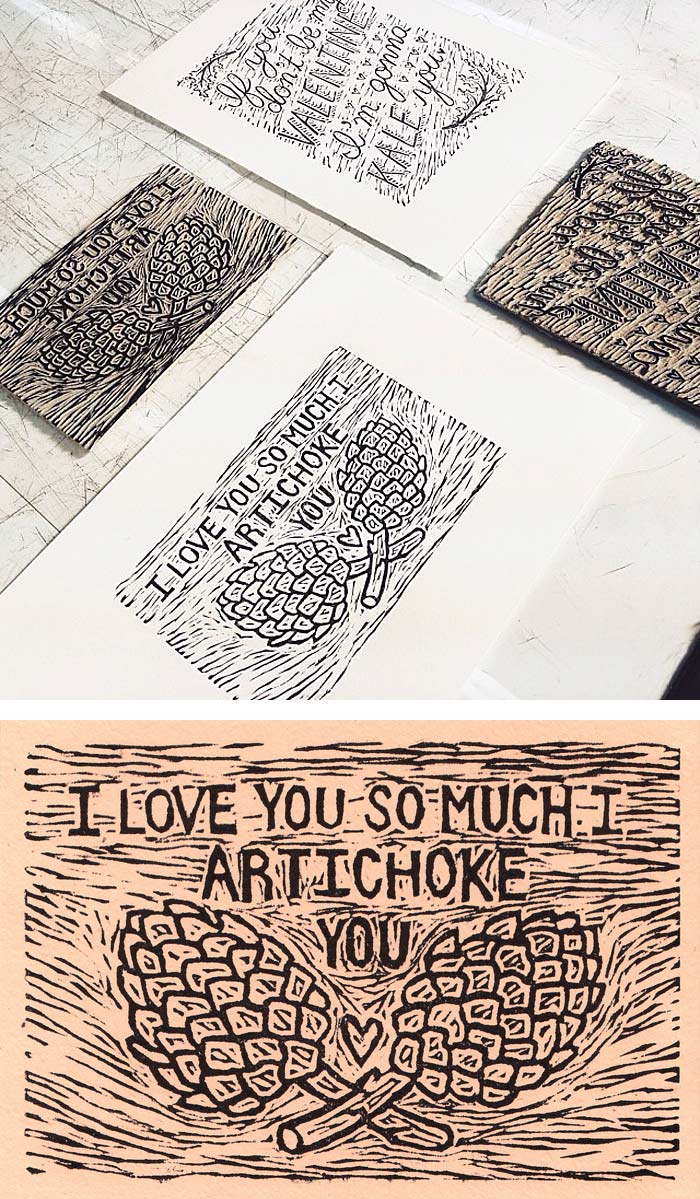 If you
don't be my
KALENTINE
I'm gonna
KALE you
I LOVE YOU SO MUCH I
ARTICHOKE
YOU
I LOVE YOU SO MUCH I
ARTICHOKE
YOU
I LOVE YOU SO MUCH I
ARTICHOKE
YOU